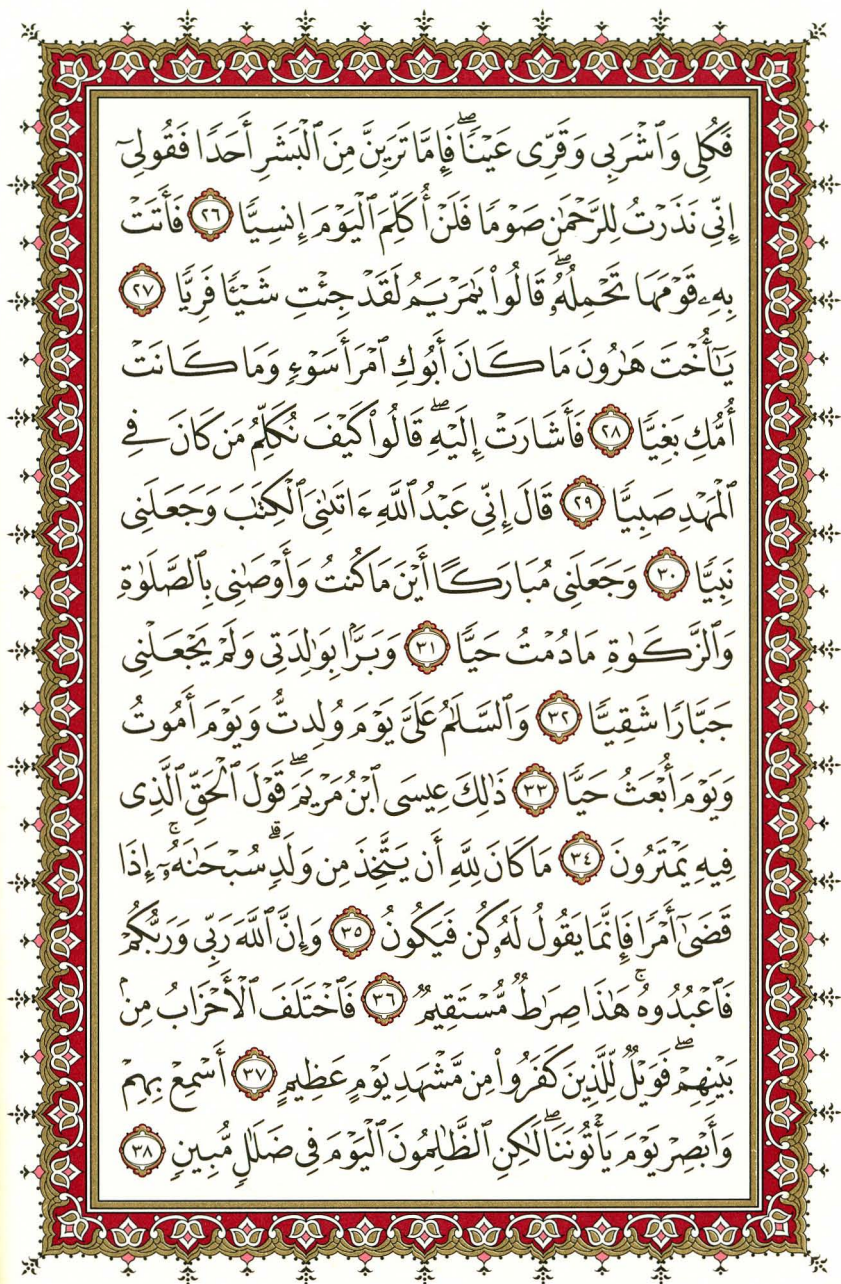 فَكُلِى وَٱشْرَبِى وَقَرِّى عَيْنًاۖ فَإِمَّا تَرَيِنَّ مِنَ ٱلْبَشَرِ أَحَدًا فَقُولِىٓ
إِنِّى نَذَرْتُ لِلرَّحْمَٰنِ صَوْمًا فَلَنْ أُكَلِّمَ ٱلْيَوْمَ إِنسِيًّا ٢٦ فَأَتَتْ
بِهِۦ قَوْمَهَا تَحْمِلُهُۥۖ قَالُوا۟ يَٰمَرْيَمُ لَقَدْ جِئْتِ شَيْـًٔا فَرِيًّا ٢٧
يَٰٓأُخْتَ هَٰرُونَ مَا كَانَ أَبُوكِ ٱمْرَأَ سَوْءٍ وَمَا كَانَتْ
أُمُّكِ بَغِيًّا ٢٨ فَأَشَارَتْ إِلَيْهِۖ قَالُوا۟ كَيْفَ نُكَلِّمُ مَن كَانَ فِى
ٱلْمَهْدِ صَبِيًّا ٢٩ قَالَ إِنِّى عَبْدُ ٱللَّهِ ءَاتَىٰنِىَ ٱلْكِتَٰبَ وَجَعَلَنِى
نَبِيًّا ٣٠ وَجَعَلَنِى مُبَارَكًا أَيْنَ مَا كُنتُ وَأَوْصَٰنِى بِٱلصَّلَوٰةِ
وَٱلزَّكَوٰةِ مَا دُمْتُ حَيًّا ٣١ وَبَرًّۢا بِوَٰلِدَتِى وَلَمْ يَجْعَلْنِى
جَبَّارًا شَقِيًّا ٣٢ وَٱلسَّلَٰمُ عَلَىَّ يَوْمَ وُلِدتُّ وَيَوْمَ أَمُوتُ
وَيَوْمَ أُبْعَثُ حَيًّا ٣٣ ذَٰلِكَ عِيسَى ٱبْنُ مَرْيَمَۖ قَوْلَ ٱلْحَقِّ ٱلَّذِى
فِيهِ يَمْتَرُونَ ٣٤ مَا كَانَ لِلَّهِ أَن يَتَّخِذَ مِن وَلَدٍۖ سُبْحَٰنَهُۥٓۚ إِذَا
قَضَىٰٓ أَمْرًا فَإِنَّمَا يَقُولُ لَهُۥ كُن فَيَكُونُ ٣٥ وَإِنَّ ٱللَّهَ رَبِّى وَرَبُّكُمْ
فَٱعْبُدُوهُۚ هَٰذَا صِرَٰطٌ مُّسْتَقِيمٌ ٣٦ فَٱخْتَلَفَ ٱلْأَحْزَابُ مِنۢ
بَيْنِهِمْۖ فَوَيْلٌ لِّلَّذِينَ كَفَرُوا۟ مِن مَّشْهَدِ يَوْمٍ عَظِيمٍ ٣٧ أَسْمِعْ بِهِمْ
وَأَبْصِرْ يَوْمَ يَأْتُونَنَاۖ لَٰكِنِ ٱلظَّٰلِمُونَ ٱلْيَوْمَ فِى ضَلَٰلٍ مُّبِينٍ ٣٨